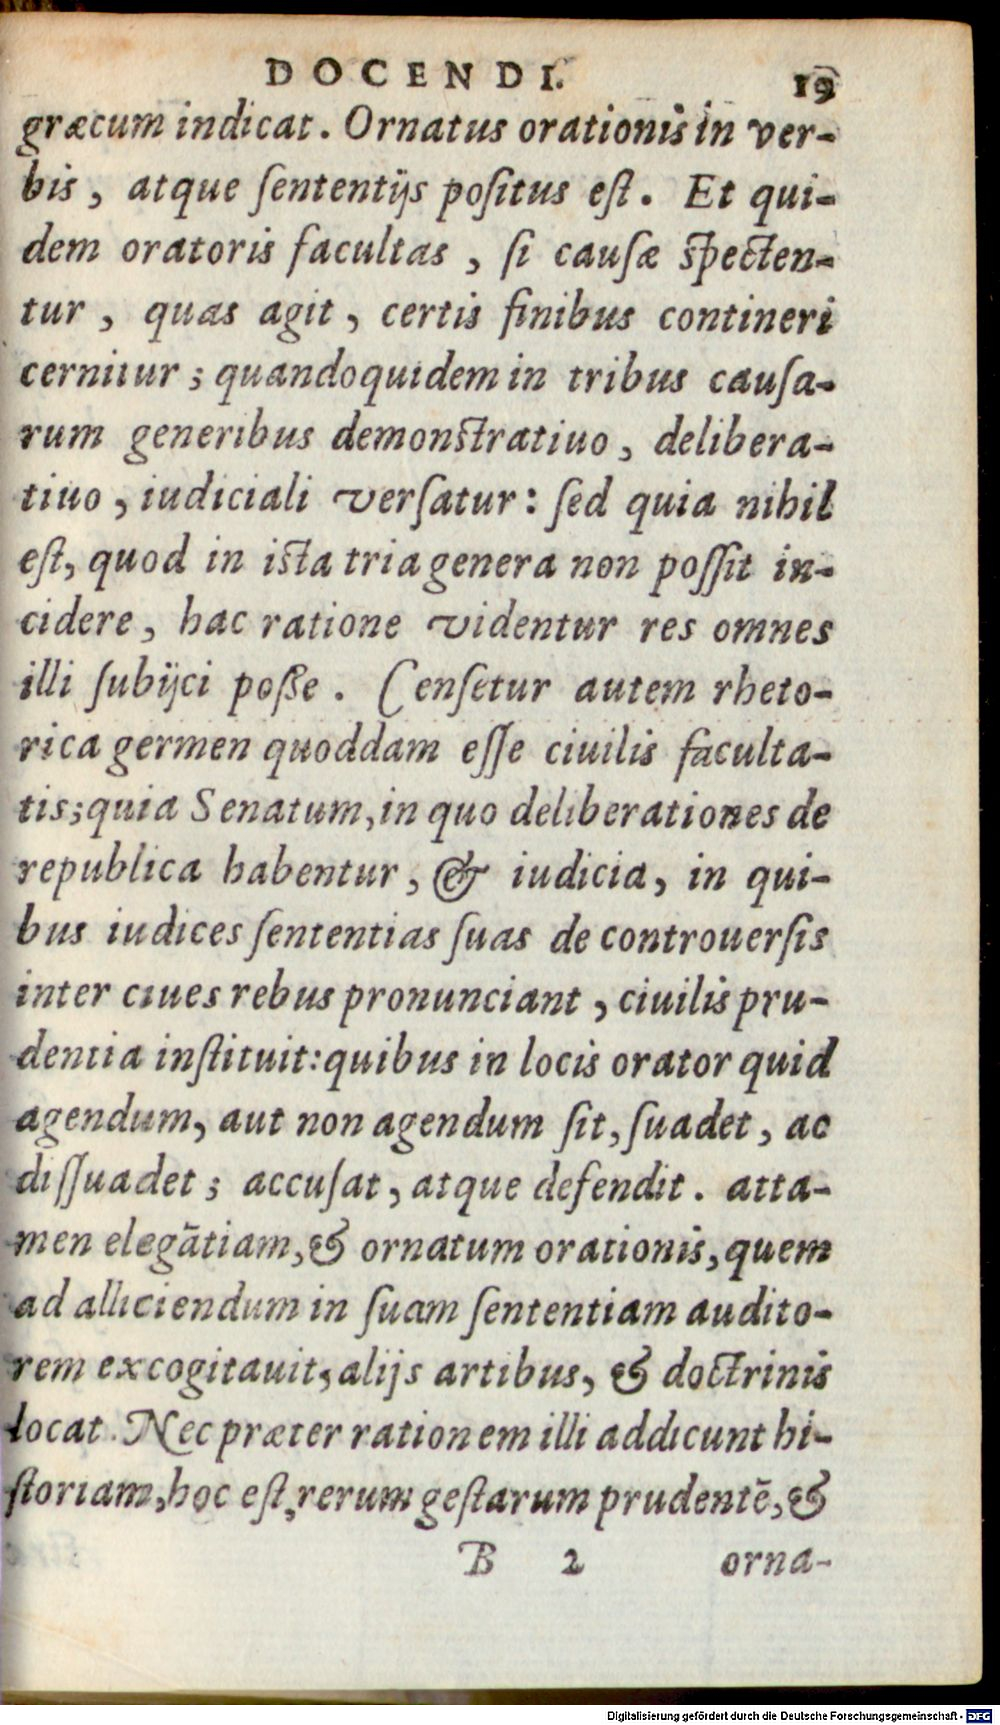 DOCENDI. 19
græcum indicat. Ornatus orationis in ver-
bis, atque ſententijs poſitus eſt. Et qui-
dem oratoris facultas, ſi cauſæ ſpecten-
tur, quas agit, certis finibus contineri
cernitur; quandoquidem in tribus cauſa-
rum generibus demonſtratiuo, delibera-
tiuo, iudiciali verſatur: ſed quia nihil
eſt, quod in iſta tria genera non poſſit in-
cidere, hac ratione videntur res omnes
illi ſubijci poße. Cenſetur autem rheto-
rica germen quoddam eſſe ciuilis faculta-
tis; quia Senatum, in quo deliberationes de
republica habentur, & iudicia, in qui-
bus iudices ſententias ſuas de controuerſis
inter ciues rebus pronunciant, ciuilis pru-
dentia inſtituit: quibus in locis orator quid
agendum, aut non agendum ſit, ſuadet, ac
diſſuadet; accuſat, atque defendit. atta-
men elegãtiam, & ornatum orationis, quem
ad alliciendum in ſuam ſententiam audito-
rem excogitauit, alijs artibus, & doctrinis
locat. Nec præter rationem illi addicunt hi-
ſtoriam, hoc eſt, rerum geſtarum prudentẽ, &
B 2 orna-
Digitalisierung gefördert durch die Deutsche Forschungsgemeinschaft - DFG